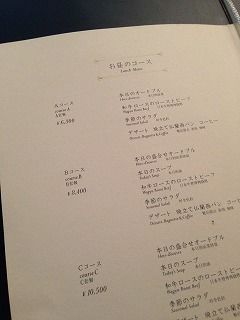 お昼のコース
Lunch Menu
Aコース
course A
A套餐
¥6,300
本日のオードブル
Hors-d'oeuvre
和牛ロースのローストビーフ
Wagyu Roast Beef
季節のサラダ
Seasonal Salad
デザート 焼立て仏蘭西パン コーヒー
Dessert, Baguette & Coffee
Bコース
course B
B套餐
¥8,400
本日の盛合せオードブル
Hors-d'oeuvre
本日のスープ
Today's Soup
和牛ロースのローストビーフ
Wagyu Roast Beef
季節のサラダ
Seasonal Salad
デザート 焼立て仏蘭西パン コーヒー
Dessert, Baguette & Coffee
Cコース
course C
C套餐
¥10,500
本日の盛合せオードブル
Hors-d'oeuvre
本日のスープ
Today's Soup
和牛ロースのローストビーフ
Wagyu Roast Beef
季節のサラダ
Seasonal Salad